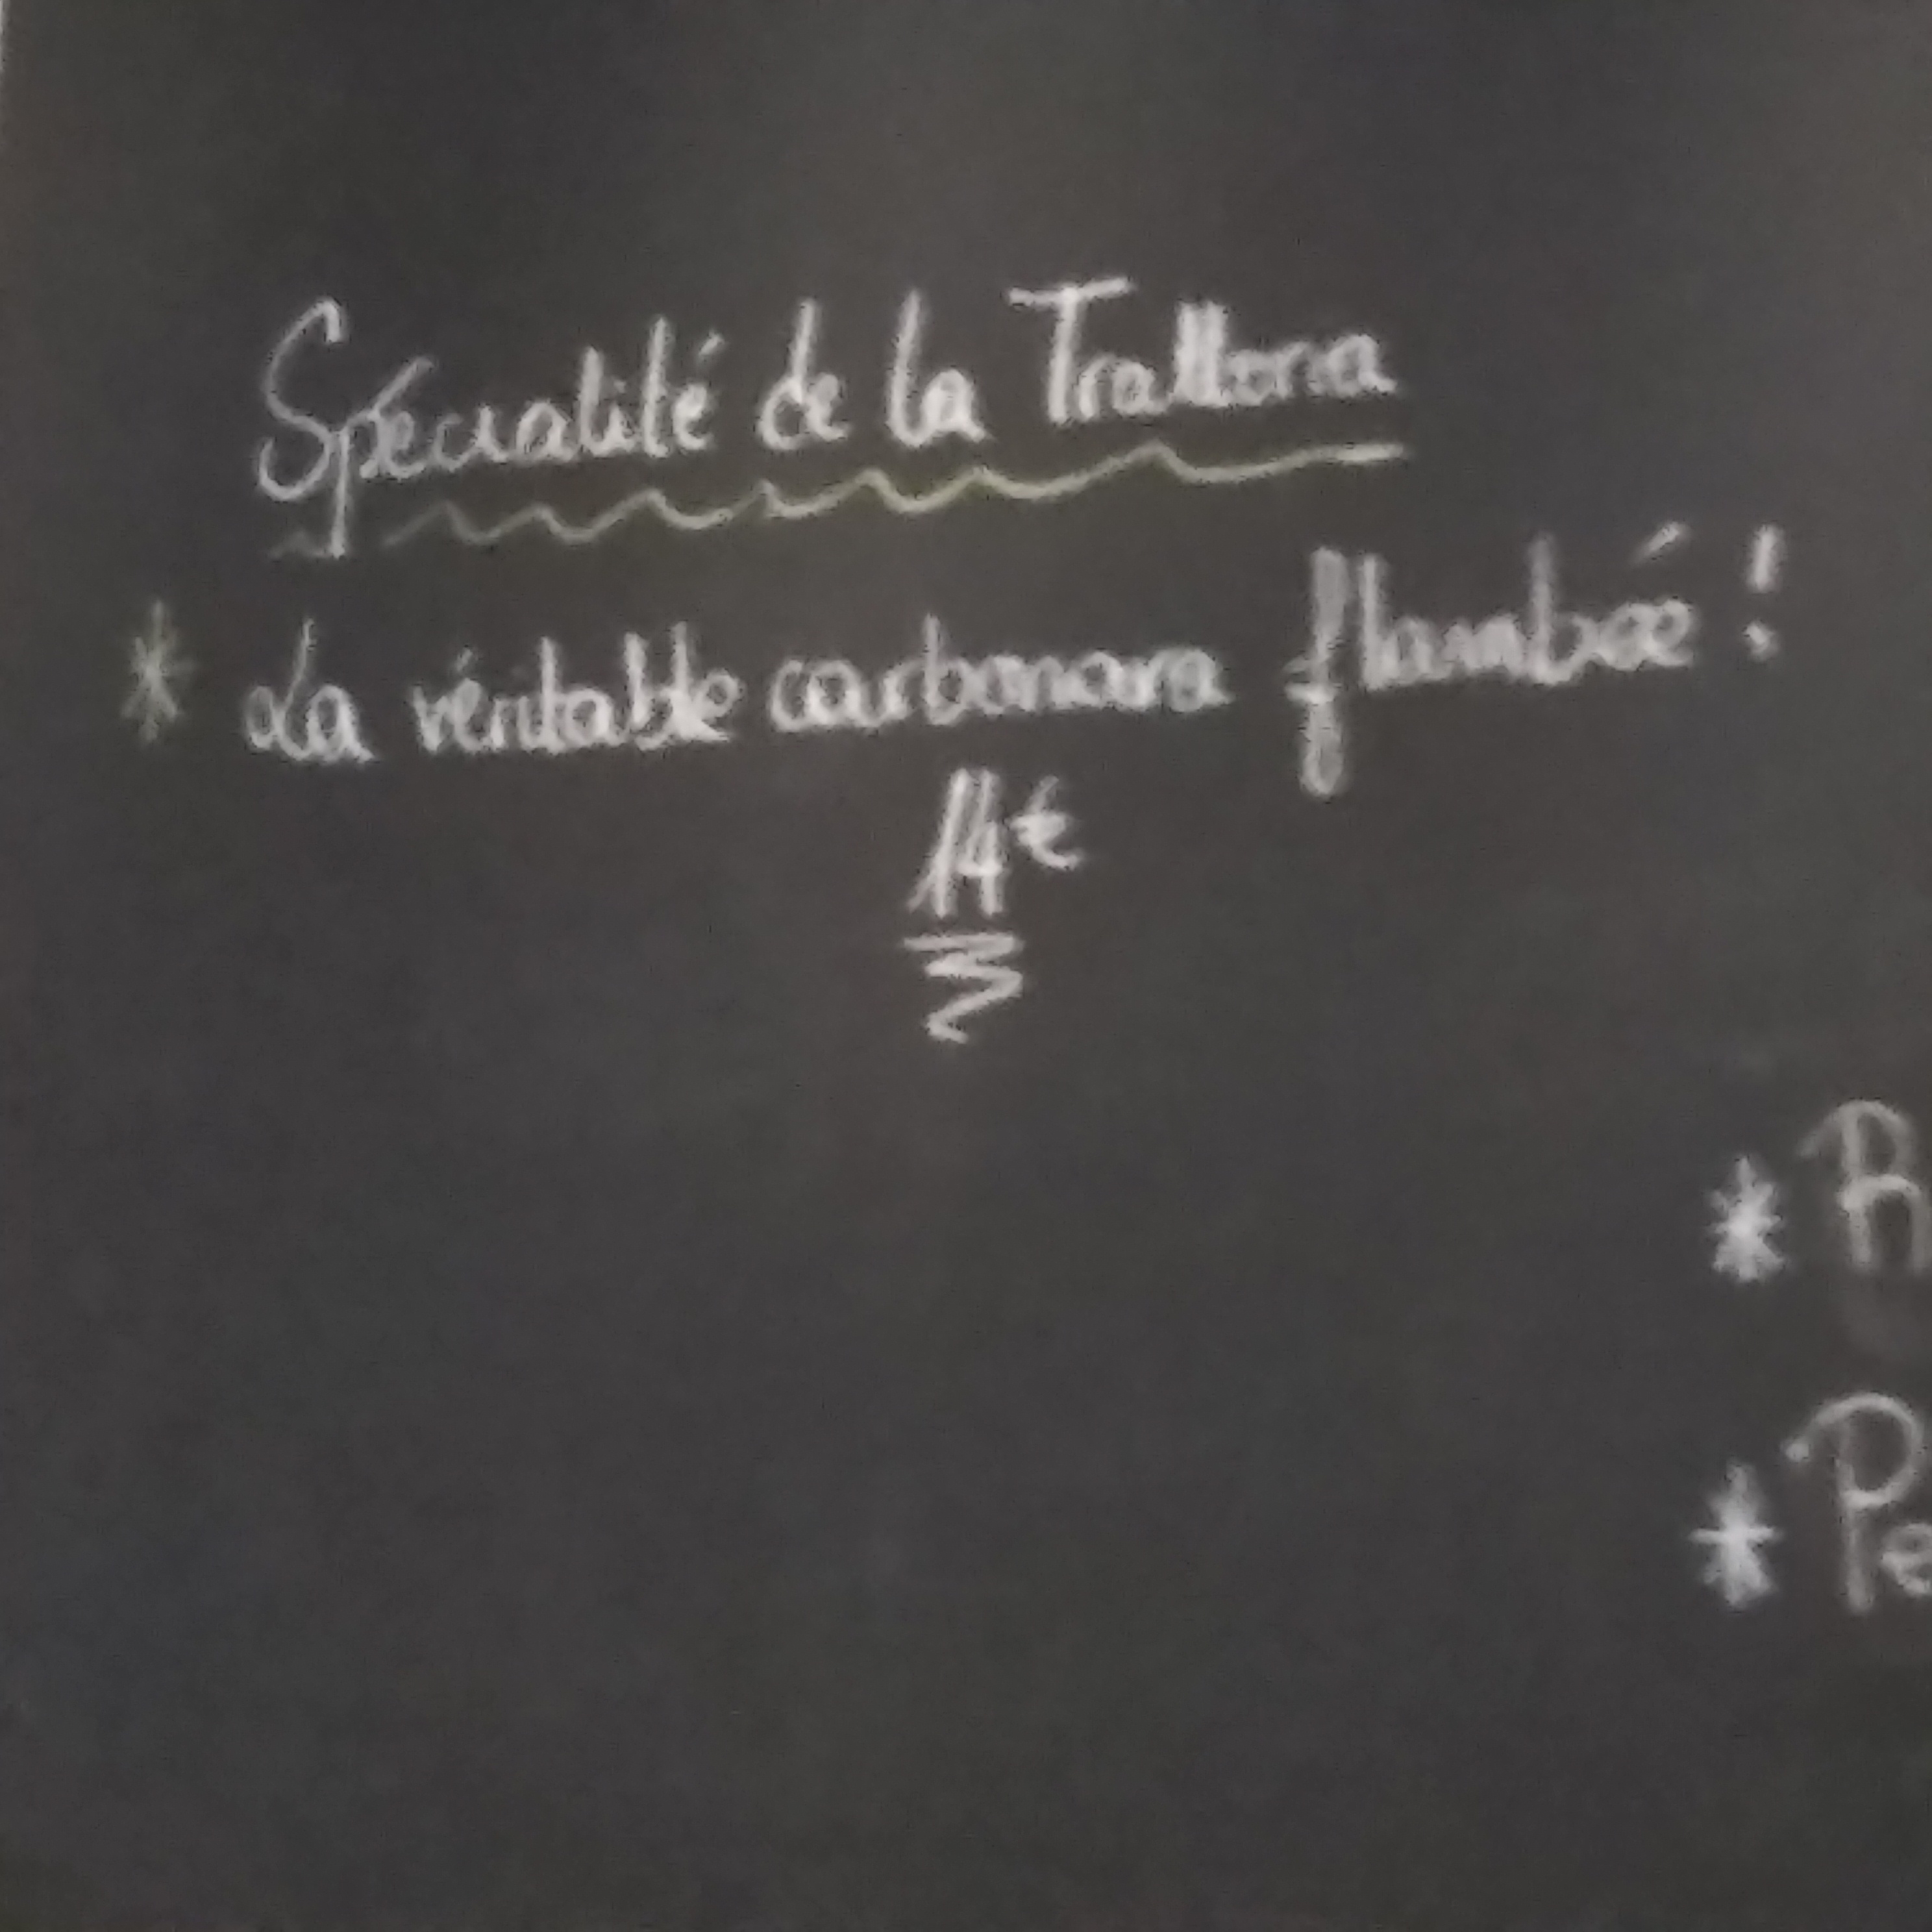 Spécialité de la Trattoria
* La véritable carbonara flambée !
14€
* R
* Pe